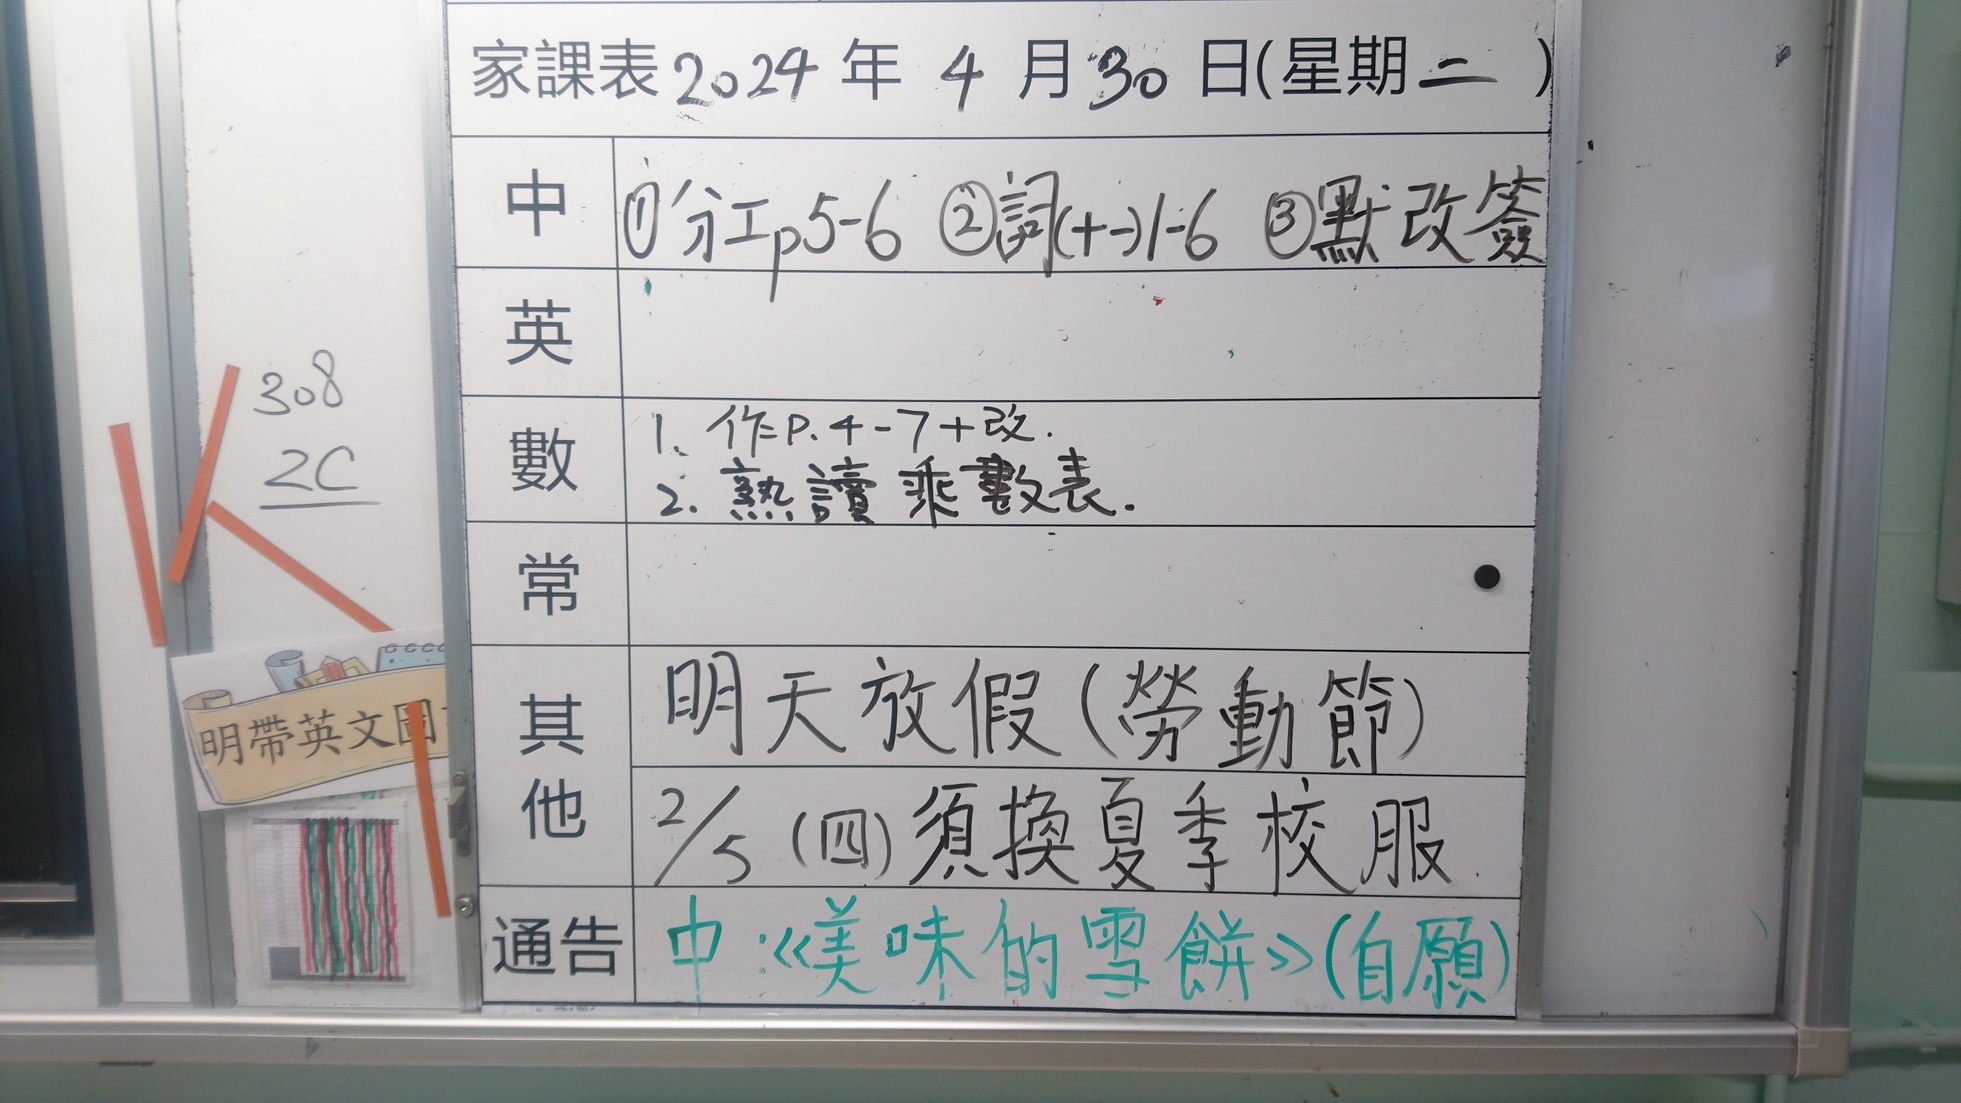 家課表 2024 年 4 月 30 日(星期二)
中 ①分工p5-6 ②詞(十一)1-6 ③默改簽
英
數 1. 作P.4-7+改.
2. 熟讀乘數表.
常
其他 明天放假(勞動節)
2/5 (四)須換夏季校服
通告 中:《美味的雪餅》(自願)
308
2C
明帶英文圖